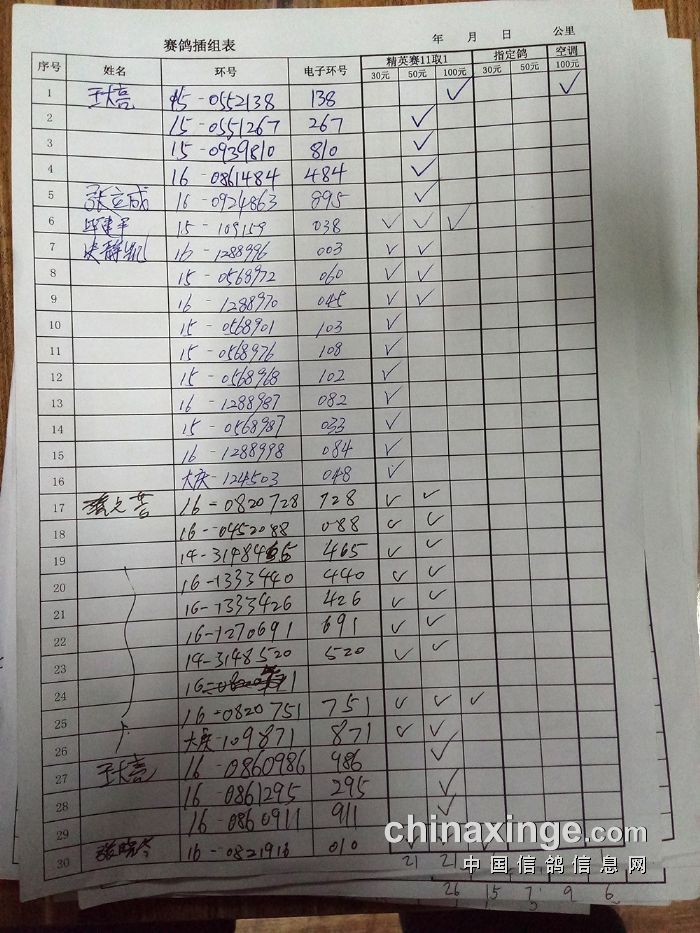 赛鸽插组表 年 月 日 公里
序号 姓名 环号 电子环号 精英赛11取1 指定鸽 空调
30元 50元 100元 30元 50元 100元
1 王大亮 15-0552138 138 ✓ ✓
2 15-0551267 267 ✓
3 15-0939810 810 ✓
4 16-0861484 484 ✓
5 张立成 16-0924863 895 ✓
6 15-109159 038 ✓ ✓ ✓
7 16-1288996 003 ✓ ✓
8 15-0568972 060 ✓ ✓
9 16-1288970 045 ✓ ✓
10 15-0568901 103 ✓
11 15-0568976 108 ✓
12 15-0568968 102 ✓
13 16-1288987 082 ✓
14 15-0568987 033 ✓
15 16-1288998 084 ✓
16 大庆-124503 048 ✓
17 16-0820728 728 ✓ ✓
18 16-0452088 088 ✓ ✓
19 14-3148465 465 ✓ ✓
20 16-1333440 440 ✓ ✓
21 16-1333426 426 ✓ ✓
22 16-1270691 691 ✓ ✓
23 14-3148520 520 ✓ ✓
24
25 16-0820751 751 ✓ ✓ ✓
26 大庆-109871 871 ✓ ✓
27 王大亮 16-0860986 986 ✓
28 16-0861295 295 ✓
29 16-0860911 911 ✓
30 张晓今 16-0821916 010 ✓ ✓
chinaxinge.com
21 21
中国信鸽信息网
26 15 7 9 6